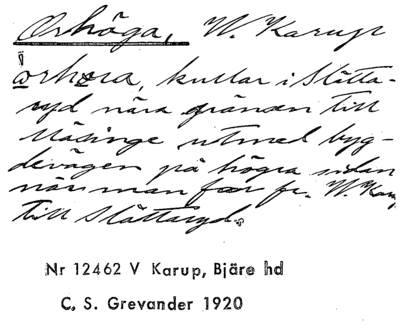 Orhöga, V. Karup
kullar i Slätta-
ryd nära gränsen till
Mäsinge utmed byg-
devägen på högra sidan
när man far fr. V. Karup
till Slättaryd.
Nr 12462 V Karup, Bjäre hd
C, S. Grevander 1920